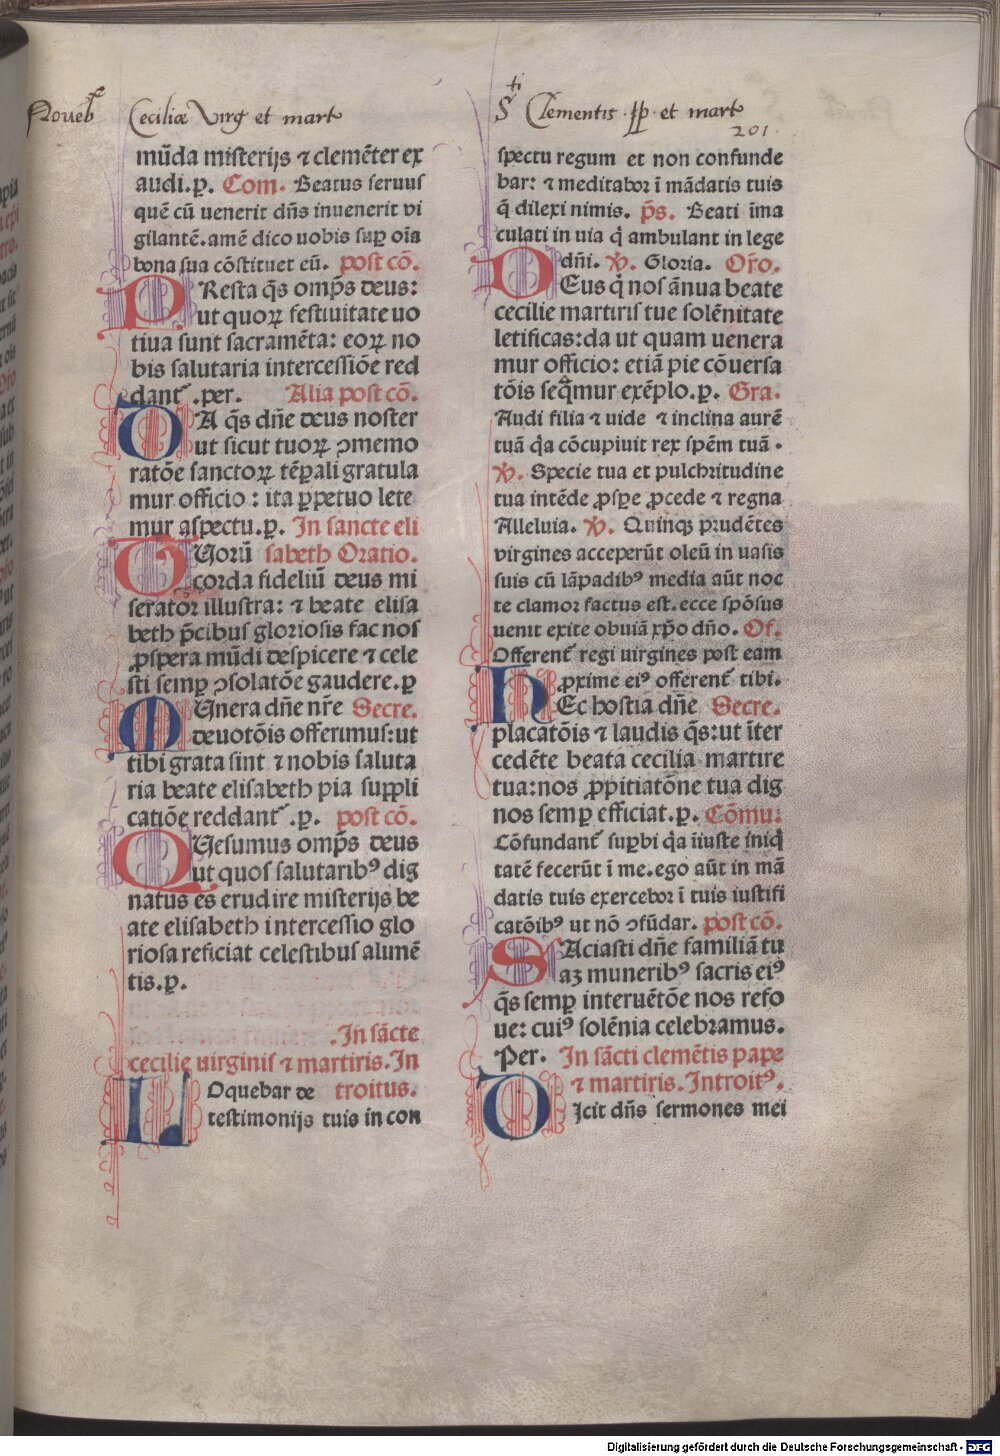 Noueb
Ceciliæ Virg et mart
mūda misterijs ⁊ clemēter ex
audi.p̱. Com. Beatus seruus
quē cū uenerit dn̄s inuenerit vi
gilantē.amē dico uobis suꝑ oīa
bona sua cōstituet eū. post cō.
PResta q̄s omp̄s deus:
ut quoꝝ festiuitate uo
tiua sunt sacramēta: eoꝝ no
bis salutaria intercessiōe red
dant᷑ .per. Alia post cō.
DA q̄s dn̄e deus noster
ut sicut tuoꝝ ꝯmemo
ratōe sanctoꝝ tēꝑali gratula
mur officio : ita ꝑpetuo lete
mur aspectu.p̱. In sancte eli
TUorū sabeth Oratio.
corda fideliū deus mi
serator illustra: ⁊ beate elisa
beth p̄cibus gloriosis fac nos
ꝓspera mūdi despicere ⁊ cele
sti semꝑ ꝯsolatōe gaudere.p̱
MUnera dn̄e nr̄e Secre.
deuotōis offerimus:ut
tibi grata sint ⁊ nobis saluta
ria beate elisabeth pia suppli
catiōe reddant᷑ .p̱. post cō.
QUesumus omp̄s deus
ut quos salutaribꝰ dig
natus es erudire misterijs be
ate elisabeth intercessio glo
riosa reficiat celestibus alimē
tis.p̱.
In sācte
cecilie uirginis ⁊ martiris. In
LOquebar de troitus.
testimonijs tuis in con
S^ti Clementis .PP. et mart
201.
spectu regum et non confunde
bar: ⁊ meditabor ī mādatis tuis
q̄ dilexi nimis. p̄s. Beati īma
culati in uia q̄ ambulant in lege
dn̄i. ℣. Gloria. Or̄o.
DEus q̄ nos ānua beate
cecilie martiris tue solēnitate
letificas:da ut quam uenera
mur officio: etiā pie cōuersa
tōis seq̄mur exēplo.p̱. Gra.
Audi filia ⁊ uide ⁊ inclina aurē
tuā q̄a cōcupiuit rex spēm tuā .
℣. Specie tua et pulchritudine
tua intēde ꝓsꝑe ꝓcede ⁊ regna
Alleluia. ℣. Quinqꝫ prudētes
virgines acceperūt oleū in uasis
suis cū lāpadibꝰ media aūt noc
te clamor factus est. ecce spōsus
uenit exite obuiā xp̄o dn̄o. Of.
Offerent᷑ regi uirgines post eam
ꝓxime eiꝰ offerent᷑ tibi.
HEc hostia dn̄e Secre.
placatōis ⁊ laudis q̄s:ut īter
cedēte beata cecilia martire
tua:nos ꝓpitiatōne tua dig
nos semꝑ efficiat.p̱. Cōmu.
Cōfundant᷑ suꝑbi q̄a iīuste iniq̄
tatē fecerūt ī me.ego aūt in mā
datis tuis exercebor ī tuis iustifi
catōibꝰ ut nō ꝯfūdar. post cō.
SAciasti dn̄e familiā tu
aꝫ muneribꝰ sacris eiꝰ
q̄s semꝑ interuētōe nos refo
ue: cuiꝰ solēnia celebramus.
Per. In sācti clemētis pape
⁊ martiris. Introitꝰ.
DIcit dn̄s sermones mei
Digitalisierung gefördert durch die Deutsche Forschungsgemeinschaft - DFG